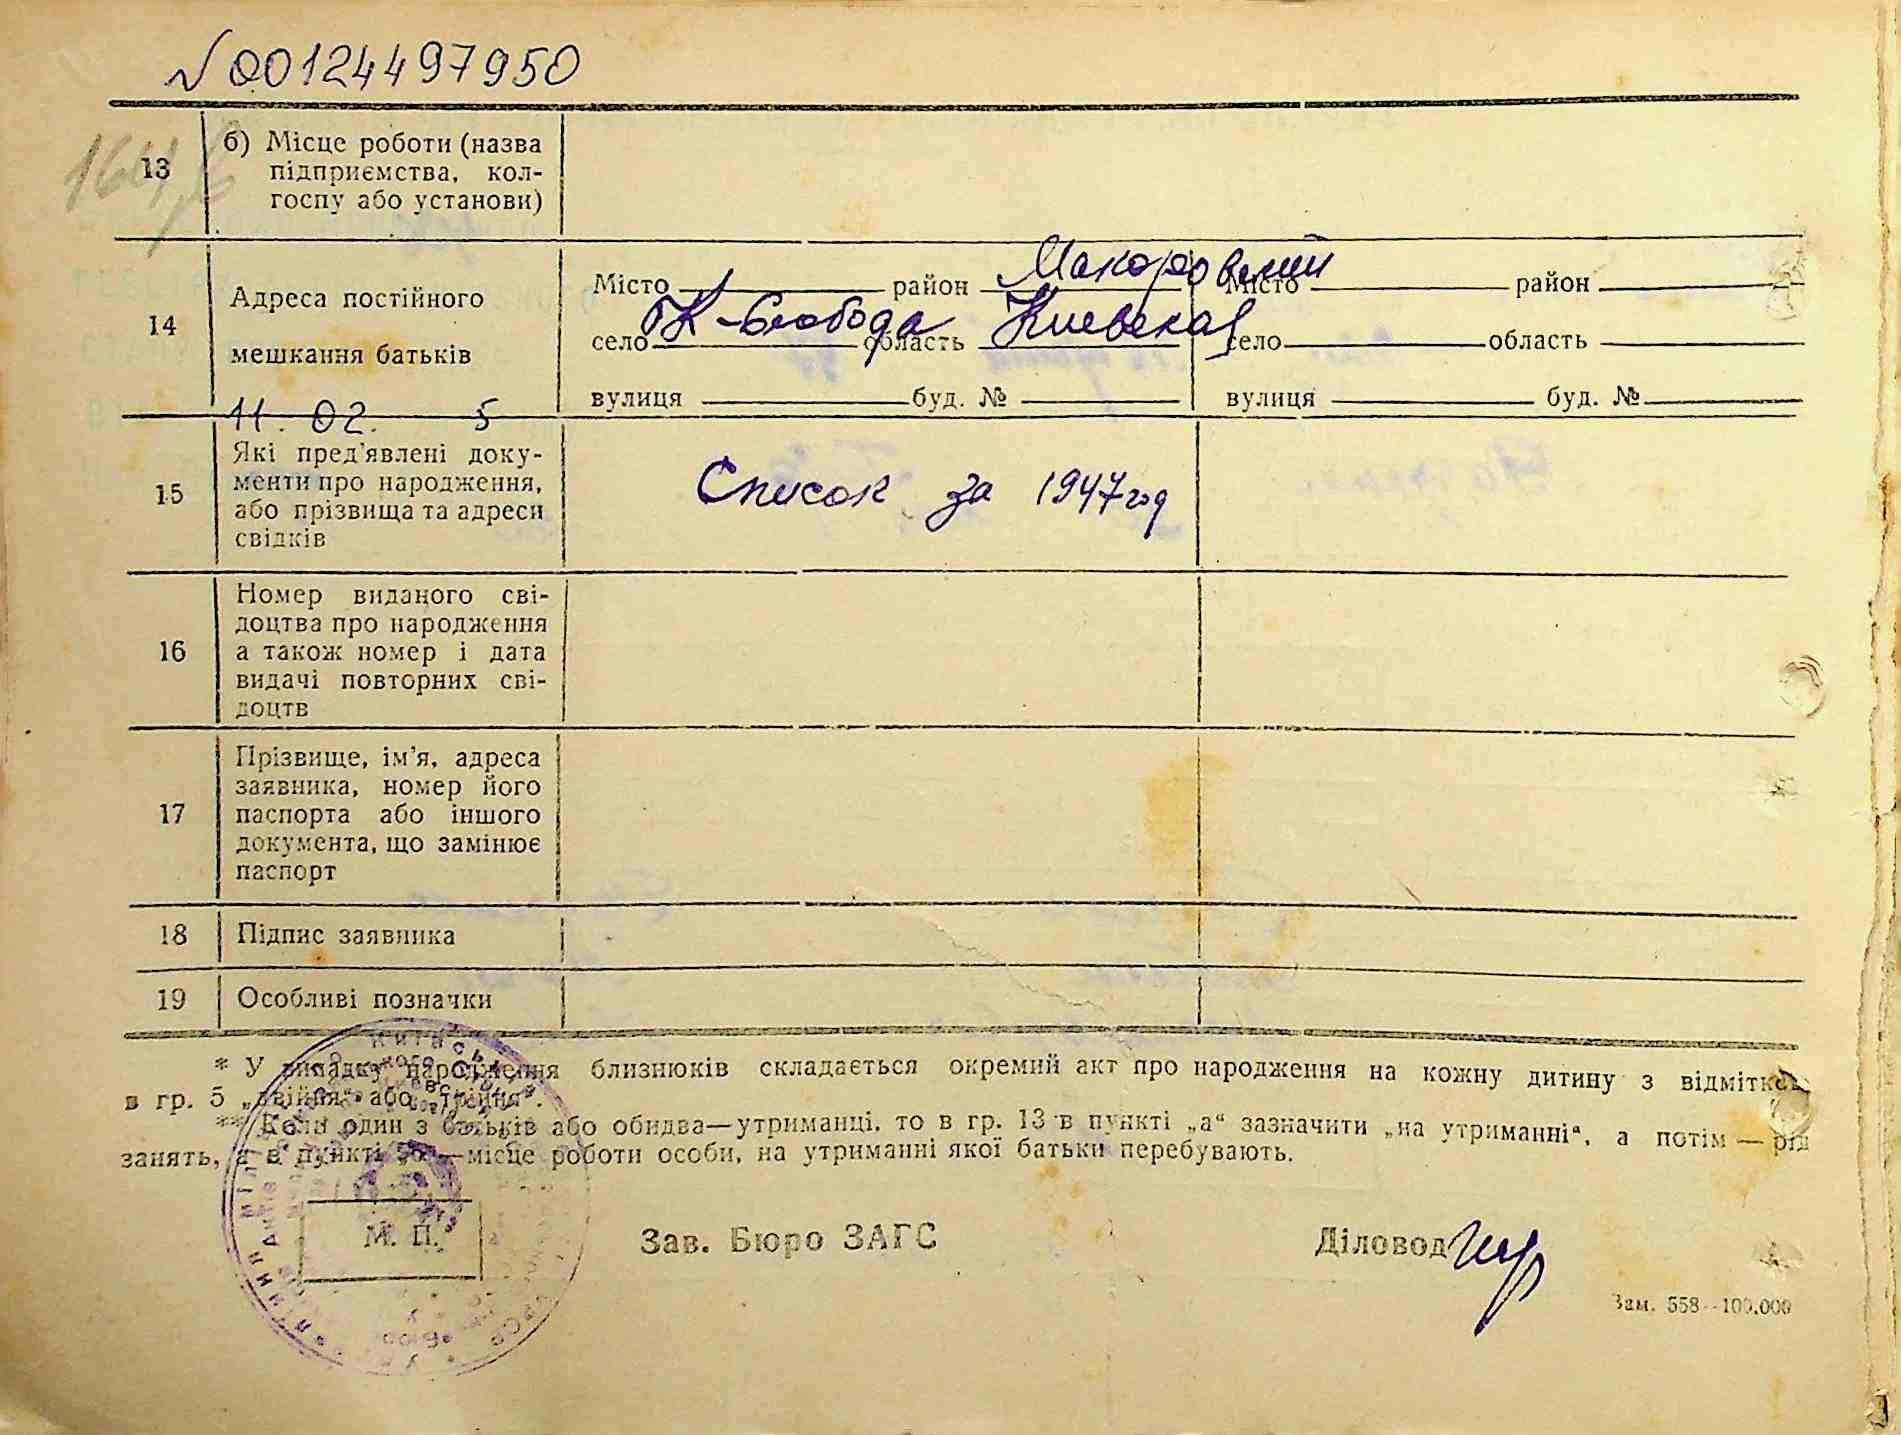 №00124497950
164,6
13
б) Місце роботи (назва
підприємства, кол-
госпу або установи)
14
Адреса постійного
мешкання батьків
Місто район Макаровский
село К-Слобода область Киевская
вулиця буд. №
Місто район
село область
вулиця буд. №
11. 02. 5
15
Які пред'явлені доку-
менти про народження,
або прізвища та адреси
свідків
Список за 1947 год
16
Номер виданого сві-
доцтва про народження
а також номер і дата
видачі повторних сві-
доцтв
17
Прізвище, ім'я, адреса
заявника, номер його
паспорта або іншого
документа, що замінює
паспорт
18 Підпис заявника
19 Особливі позначки
* У випадку народження близнюків складається окремий акт про народження на кожну дитину з відміткою
в гр. 5 „двійня“ або „трійня“.
** Коли один з батьків або обидва—утриманці, то в гр. 13 в пункті „а“ зазначити „на утриманні“, а потім — рід
занять, а в пункті „б“—місце роботи особи, на утриманні якої батьки перебувають.
М. П.
Зав. Бюро ЗАГС
Діловод
Зам. 558—100.000